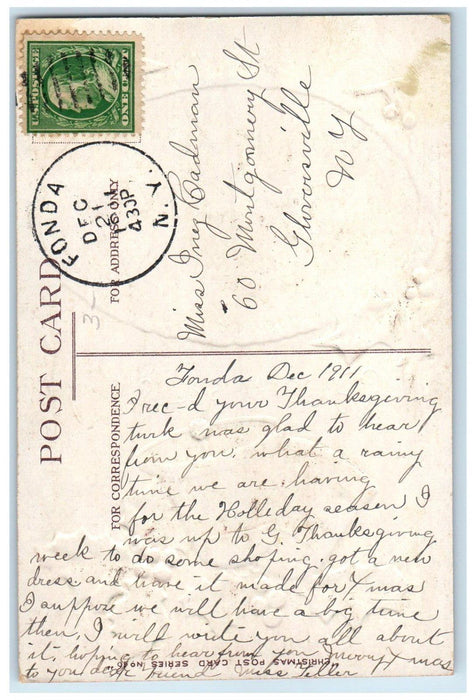 U.S. POSTAGE
ONE CENT
FONDA
DEC
21
430P
N.Y.
POST CARD
3-
FOR ADDRESS ONLY
Miss Inez Cadman
60 Montgomery St
Gloversville
NY
FOR CORRESPONDENCE
Fonda Dec 1911
I rec-d your Thanksgiving
turk was glad to hear
from you. what a rainy
time we are having
for the Holleday season I
was up to G. Thanksgiving
week to do some shoping, got a new
dress and have it made for Xmas
I suppose we will have a big time
then, I will write you all about
it, hoping to hear from you Merry Xmas
to you dear friend Miss Teller
CHRISTMAS POST CARD SERIES NO.